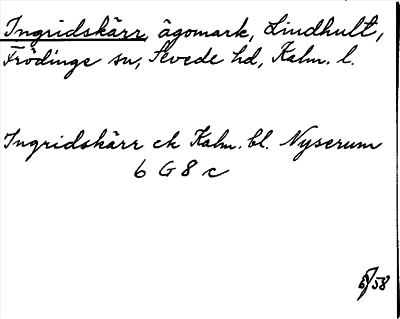 Ingridskärr, ägomark, Lindhult,
Frödinge sn, Sevede hd, Kalm. l.
Ingridskärr ek Kalm. bl. Nyserum
6 G 8 c
8/58